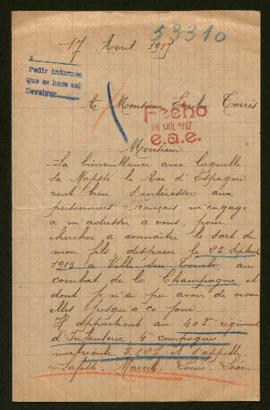 53310
17 Avril 1917
Pedir informes
Que se hace así
Devolver
A Monsieur Emilio Torrès
Fecho
26 ABR. 1917
e.a.e.
Monsieur
La bienveillance avec laquelle
Sa Majesté le Roi d'Espagne
veut bien s'intéresser aux
prisonniers Français m'engage
à m'adresser à vous pour
chercher à connaître le sort de
mon fils disparu le 25 Septembre
1915 à au
combat de la Champagne et
dont je n'ai pu avoir de nou
velles jusqu'à ce jour.
Il appartient au 403e régiment
d'Infanterie 4e compagnie
matricule et s'appelle
Marcel Louis Léon